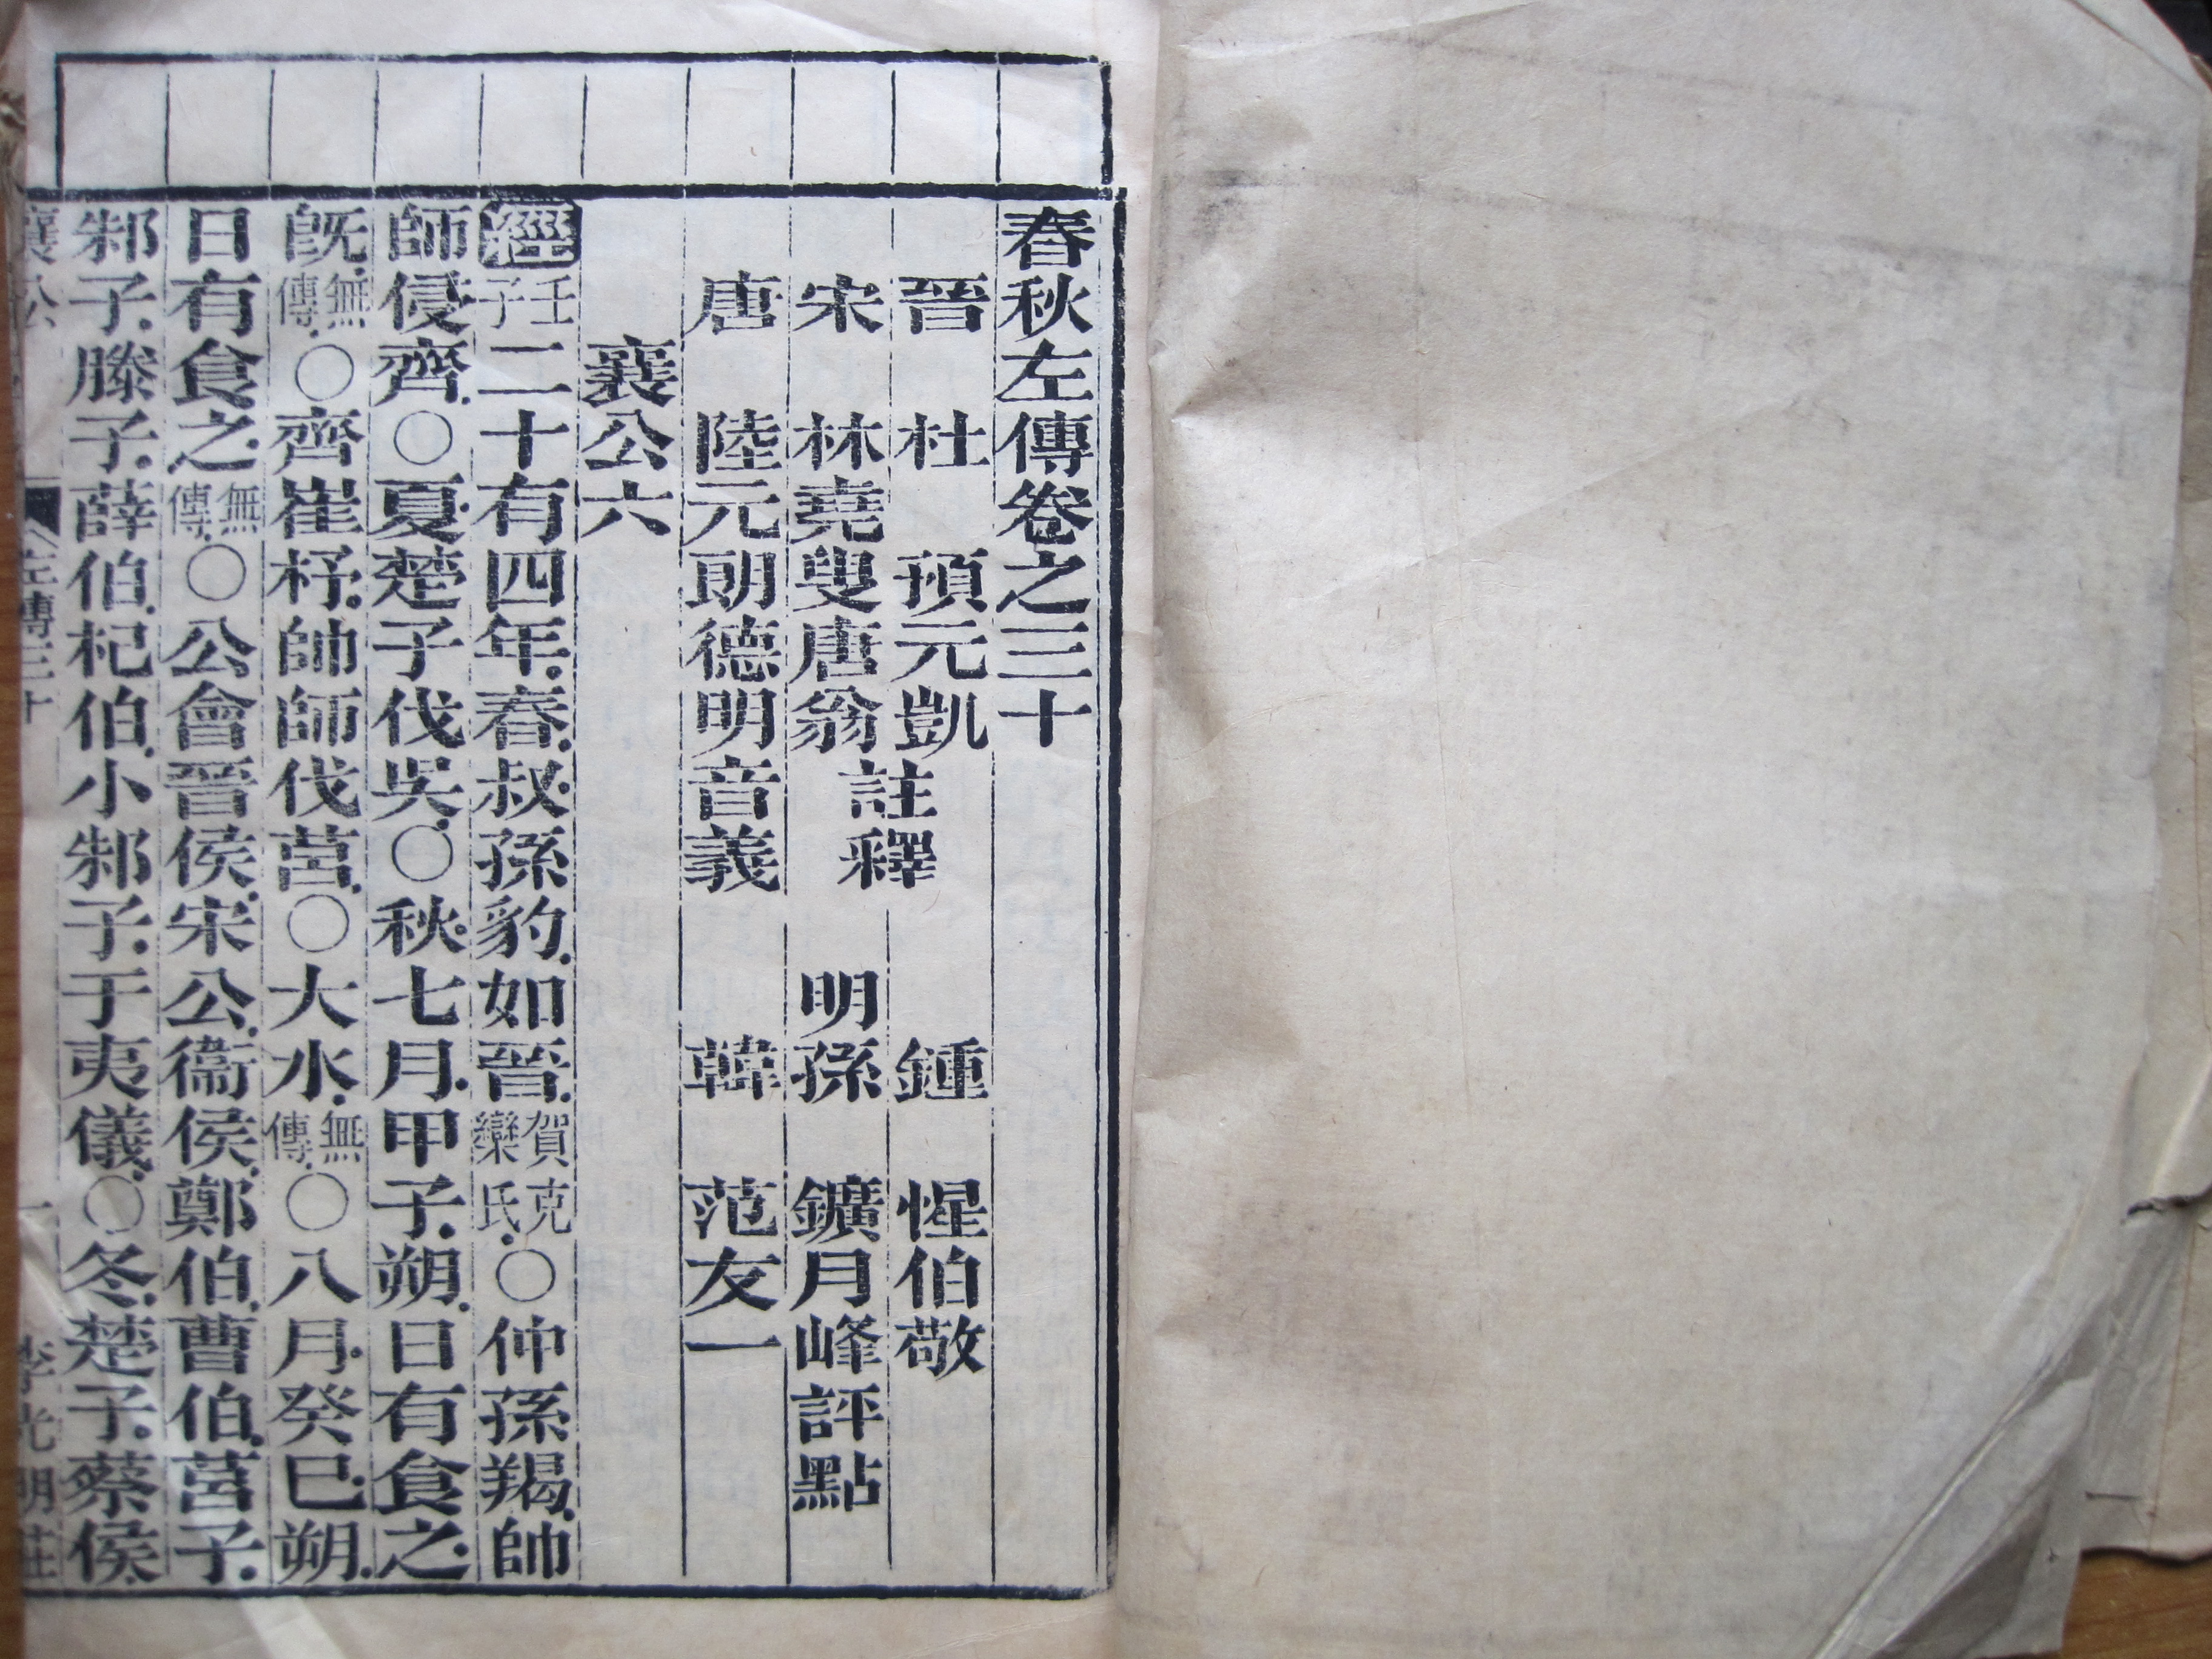 春秋左傳卷之三十
晉　杜　預元凱
宋　林堯叟唐翁
註釋
唐　陸元朗德明音義
鍾　惺伯敬
明孫　鑛月峰評點
韓　范友一
襄公六
經壬子二十有四年春叔孫豹如晉賀克欒氏○仲孫羯帥
師侵齊○夏楚子伐吳○秋七月甲子朔日有食之
旣無傳○齊崔杼帥師伐莒○大水無傳○八月癸巳朔
日有食之無傳○公會晉侯宋公衞侯鄭伯曹伯莒子
邾子滕子薛伯杞伯小邾子于夷儀○冬楚子蔡侯
襄公　左傳三十　一　李光明莊